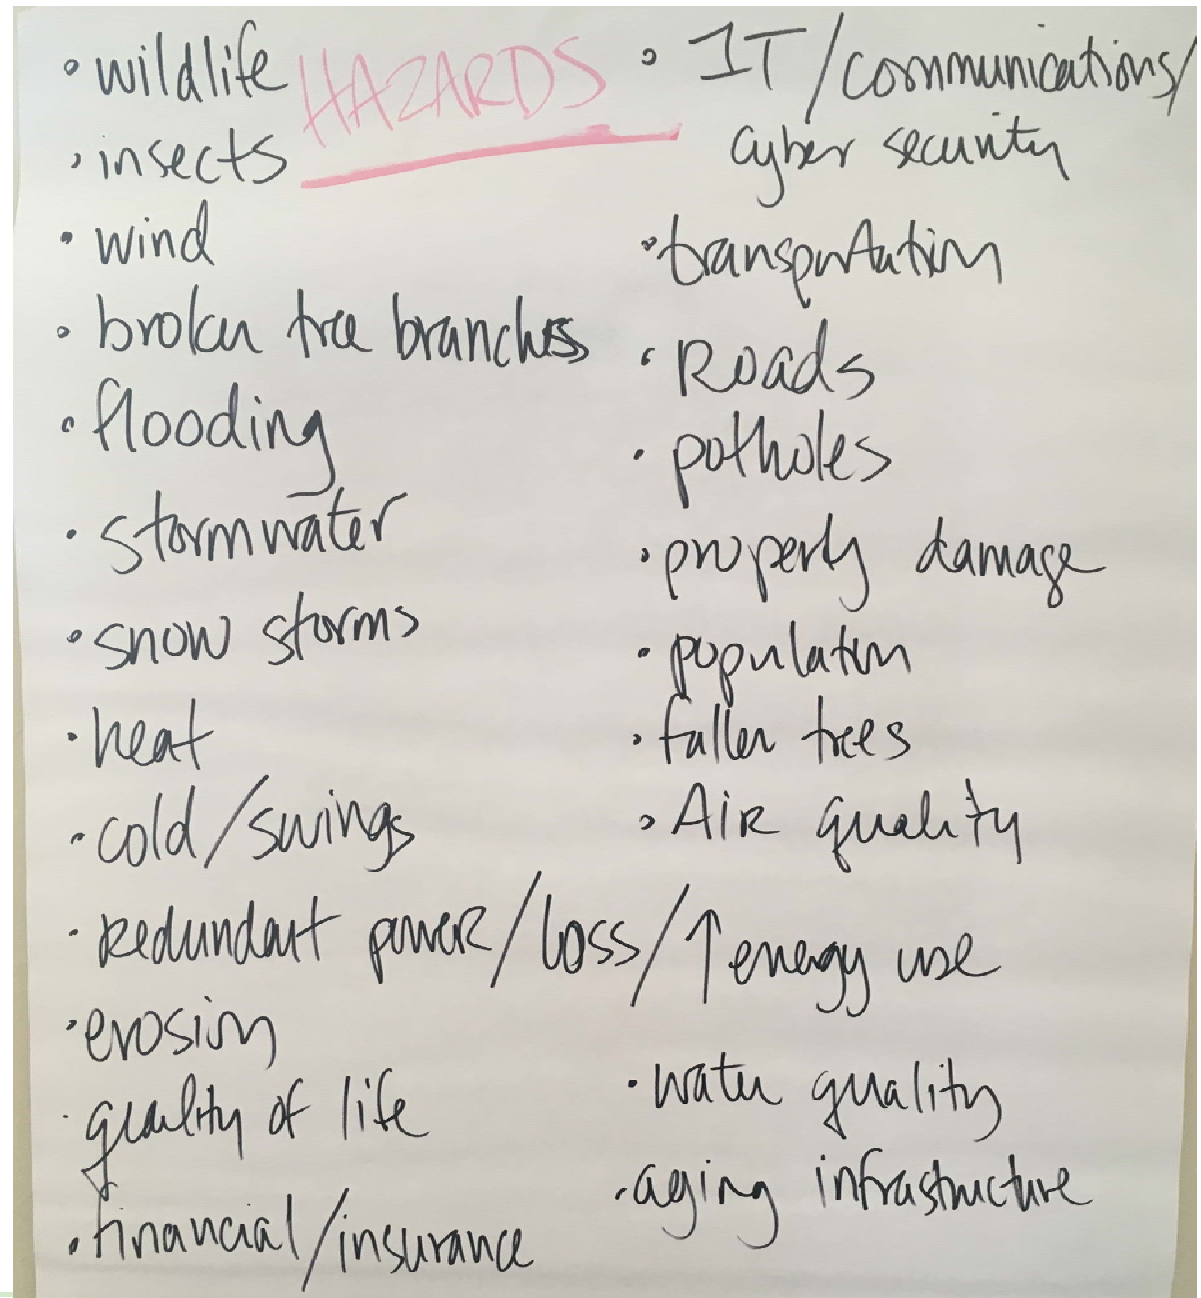 HAZARDS
• wildlife
• insects
• wind
• broken tree branches
• flooding
• stormwater
• snow storms
• heat
• cold/swings
• Redundant power/loss/↑ energy use
• erosion
• quality of life
• financial/insurance
• IT/communications/
cyber security
• transportation
• Roads
• potholes
• property damage
• population
• fallen trees
• AiR quality
• water quality
• aging infrastructure